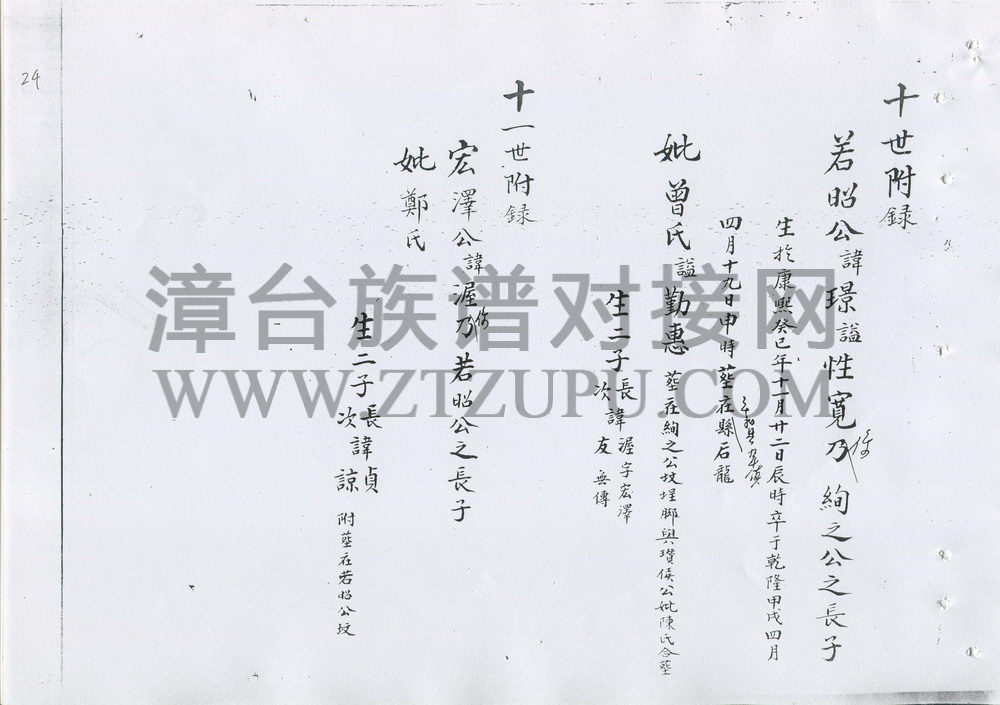 十世附録
若昭公諱璟謚性寬乃絢之公之長子
生於康熙癸巳年十一月廿二日辰時卒于乾隆甲戌四月
四月十九日申時塟在縣后龍
妣曾氏謚勤惠塟在絢之公坟埕脚與瓚侯公妣陳氏合塟
生二子長諱渥字宏澤
次諱友无傳
十一世附録
宏澤公諱渥乃若昭公之長子
妣鄭氏
生二子長諱貞
次諱諒附塟在若昭公坟
24
漳台族谱对接网
WWW.ZTZUPU.COM